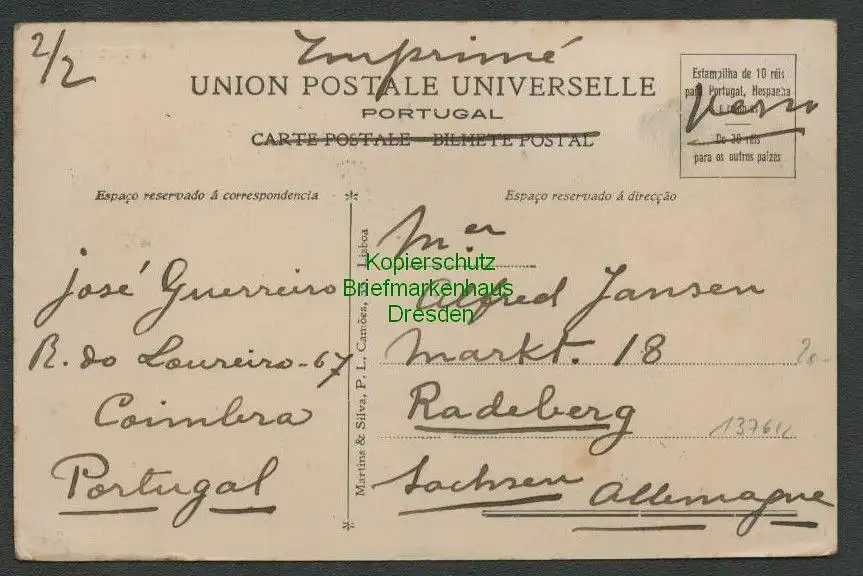 2/2
Imprimé
UNION POSTALE UNIVERSELLE
PORTUGAL
CARTE POSTALE - BILHETE POSTAL
Estampilha de 10 réis
para Portugal, Hespanha
De 20 réis
para os outros paizes
Espaço reservado á correspondencia
José Guerreiro
R. do Loureiro-67
Coimbra
Portugal
Martins & Silva, P. L., Camões, Lisboa
Espaço reservado á direcção
Mer
Alfred Jansen
Markt. 18
Radeberg
Sachsen Allemagne
Kopierschutz
Briefmarkenhaus
Dresden